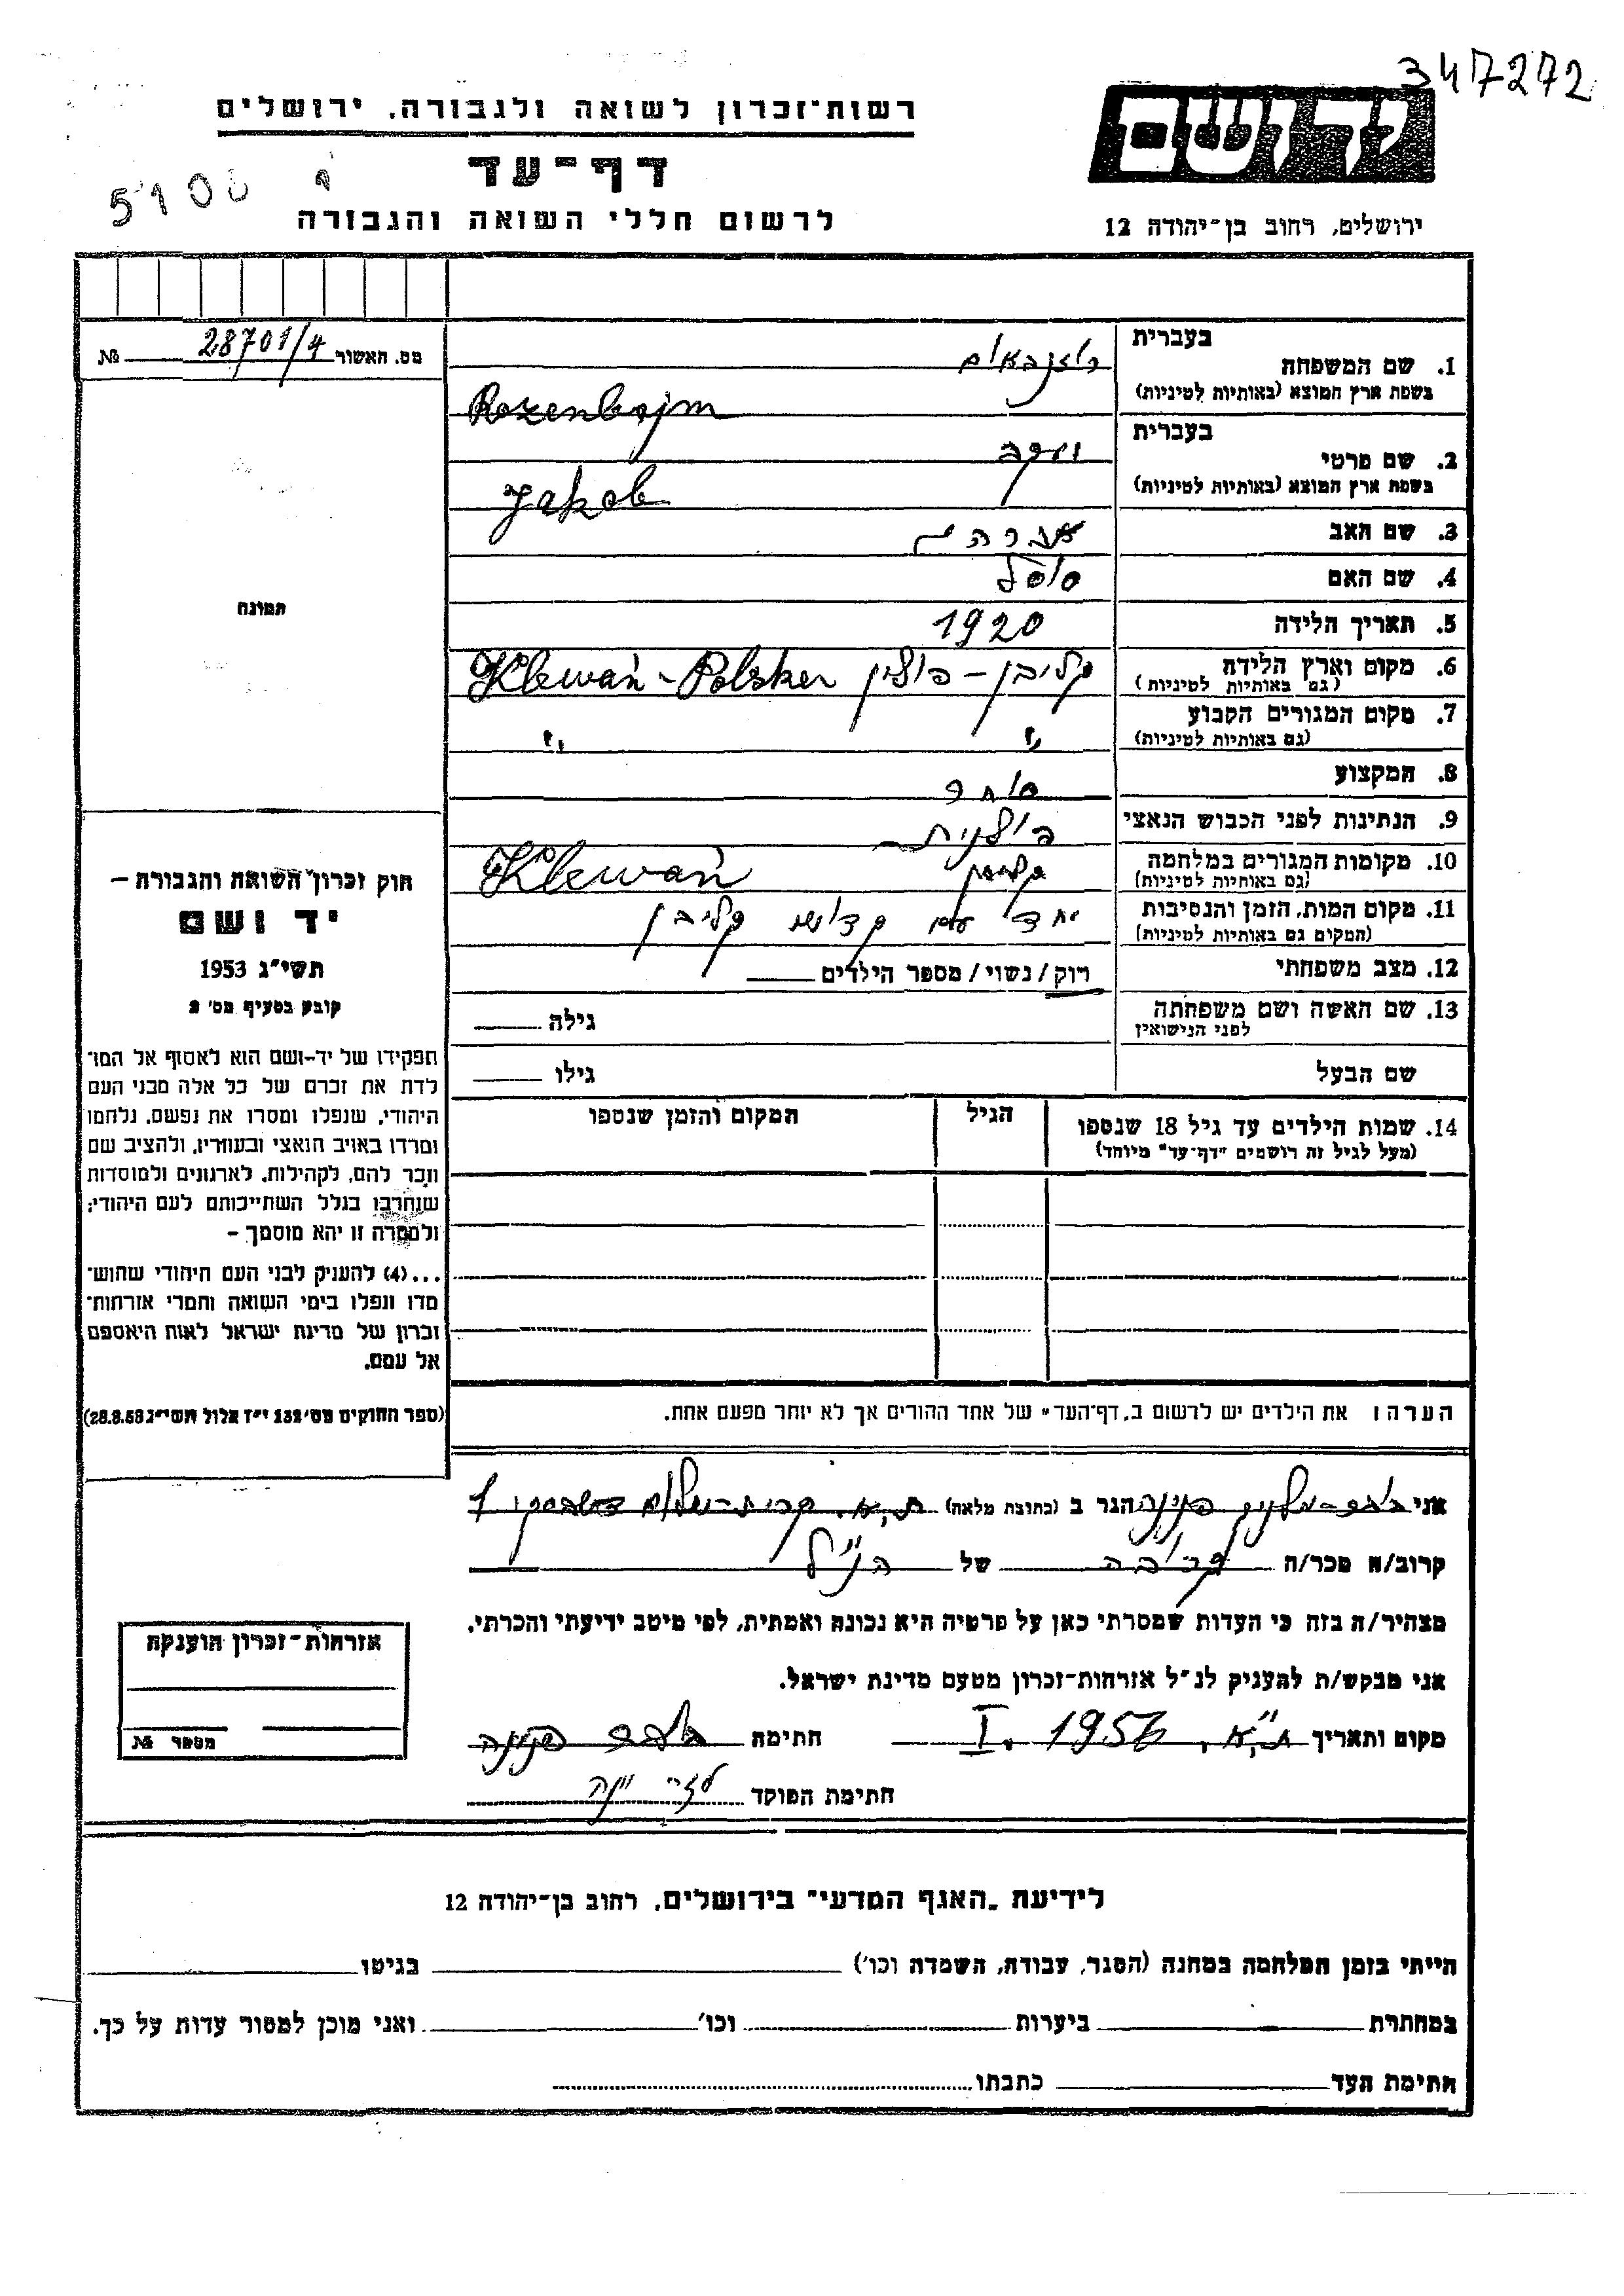 347272
יד ושם
רשות־זכרון לשואה ולגבורה, ירושלים
דף־עד
5100
לרשום חללי השואה והגבורה
ירושלים, רחוב בן־יהודה 12
מס. האשור 28701/4 №
בעברית
1. שם המשפחה רוזנבאום
בשפת ארץ המוצא (באותיות לטיניות) Rozenbojm
בעברית
2. שם פרטי יעקב
בשפת ארץ המוצא (באותיות לטיניות) Jakob
3. שם האב אברהם
4. שם האם סוסל
5. תאריך הלידה 1920
6. מקום וארץ הלידה קליבן – פולין Klewań - Polsker
(גם באותיות לטיניות)
7. מקום המגורים הקבוע " "
(גם באותיות לטיניות)
8. המקצוע סוחר
9. הנתינות לפני הכבוש הנאצי פולנית
10. מקומות המגורים במלחמה קליבן Klewań
(גם באותיות לטיניות)
11. מקום המות, הזמן והנסיבות יחד עם קדושי קליבן
(המקום גם באותיות לטיניות)
12. מצב משפחתי רוק / נשוי / מספר הילדים
13. שם האשה ושם משפחתה גילה
לפני הנישואין
שם הבעל גילו
14. שמות הילדים עד גיל 18 שנספו הגיל המקום והזמן שנספו
(מעל לגיל זה רושמים "דף־עד" מיוחד)
תמונה
חוק זכרון השואה והגבורה –
יד ושם
תשי"ג 1953
קובע בסעיף מס' 2
תפקידו של יד-ושם הוא לאסוף אל המו־
לדת את זכרם של כל אלה מבני העם
היהודי, שנפלו ומסרו את נפשם, נלחמו
ומרדו באויב הנאצי ובעוזריו, ולהציב שם
וזכר להם, לקהילות, לארגונים ולמוסדות
שנחרבו בגלל השתייכותם לעם היהודי;
ולמטרה זו יהא מוסמך –
...(4) להעניק לבני העם היהודי שהוש־
מדו ונפלו בימי השואה והמרי אזרחות־
זכרון של מדינת ישראל לאות היאספם
אל עמם.
(ספר החוקים מס' 132 י"ז אלול תשי"ג 28.8.53)
הערה: את הילדים יש לרשום ב"דף־העד" של אחד ההורים אך לא יותר מפעם אחת.
אני פנינה הגר ב (כתובת מלאה) ת"א קרית-שלום 1
קרוב/ה מכר/ה קרובה של הנ"ל
מצהיר/ה בזה כי העדות שמסרתי כאן על פרטיה היא נכונה ואמתית, לפי מיטב ידיעתי והכרתי.
אני מבקש/ת להעניק לנ"ל אזרחות־זכרון מטעם מדינת ישראל.
מקום ותאריך ת"א, 1956 . I חתימה פנינה
חתימת הפוקד
אזרחות־זכרון הוענקה
מספר №
לידיעת "האגף המדעי" בירושלים, רחוב בן־יהודה 12
הייתי בזמן המלחמה במחנה (הסגר, עבודה, השמדה וכו') בגיטו
במחתרת ביערות וכו' ואני מוכן למסור עדות על כך.
חתימת העד כתבתו